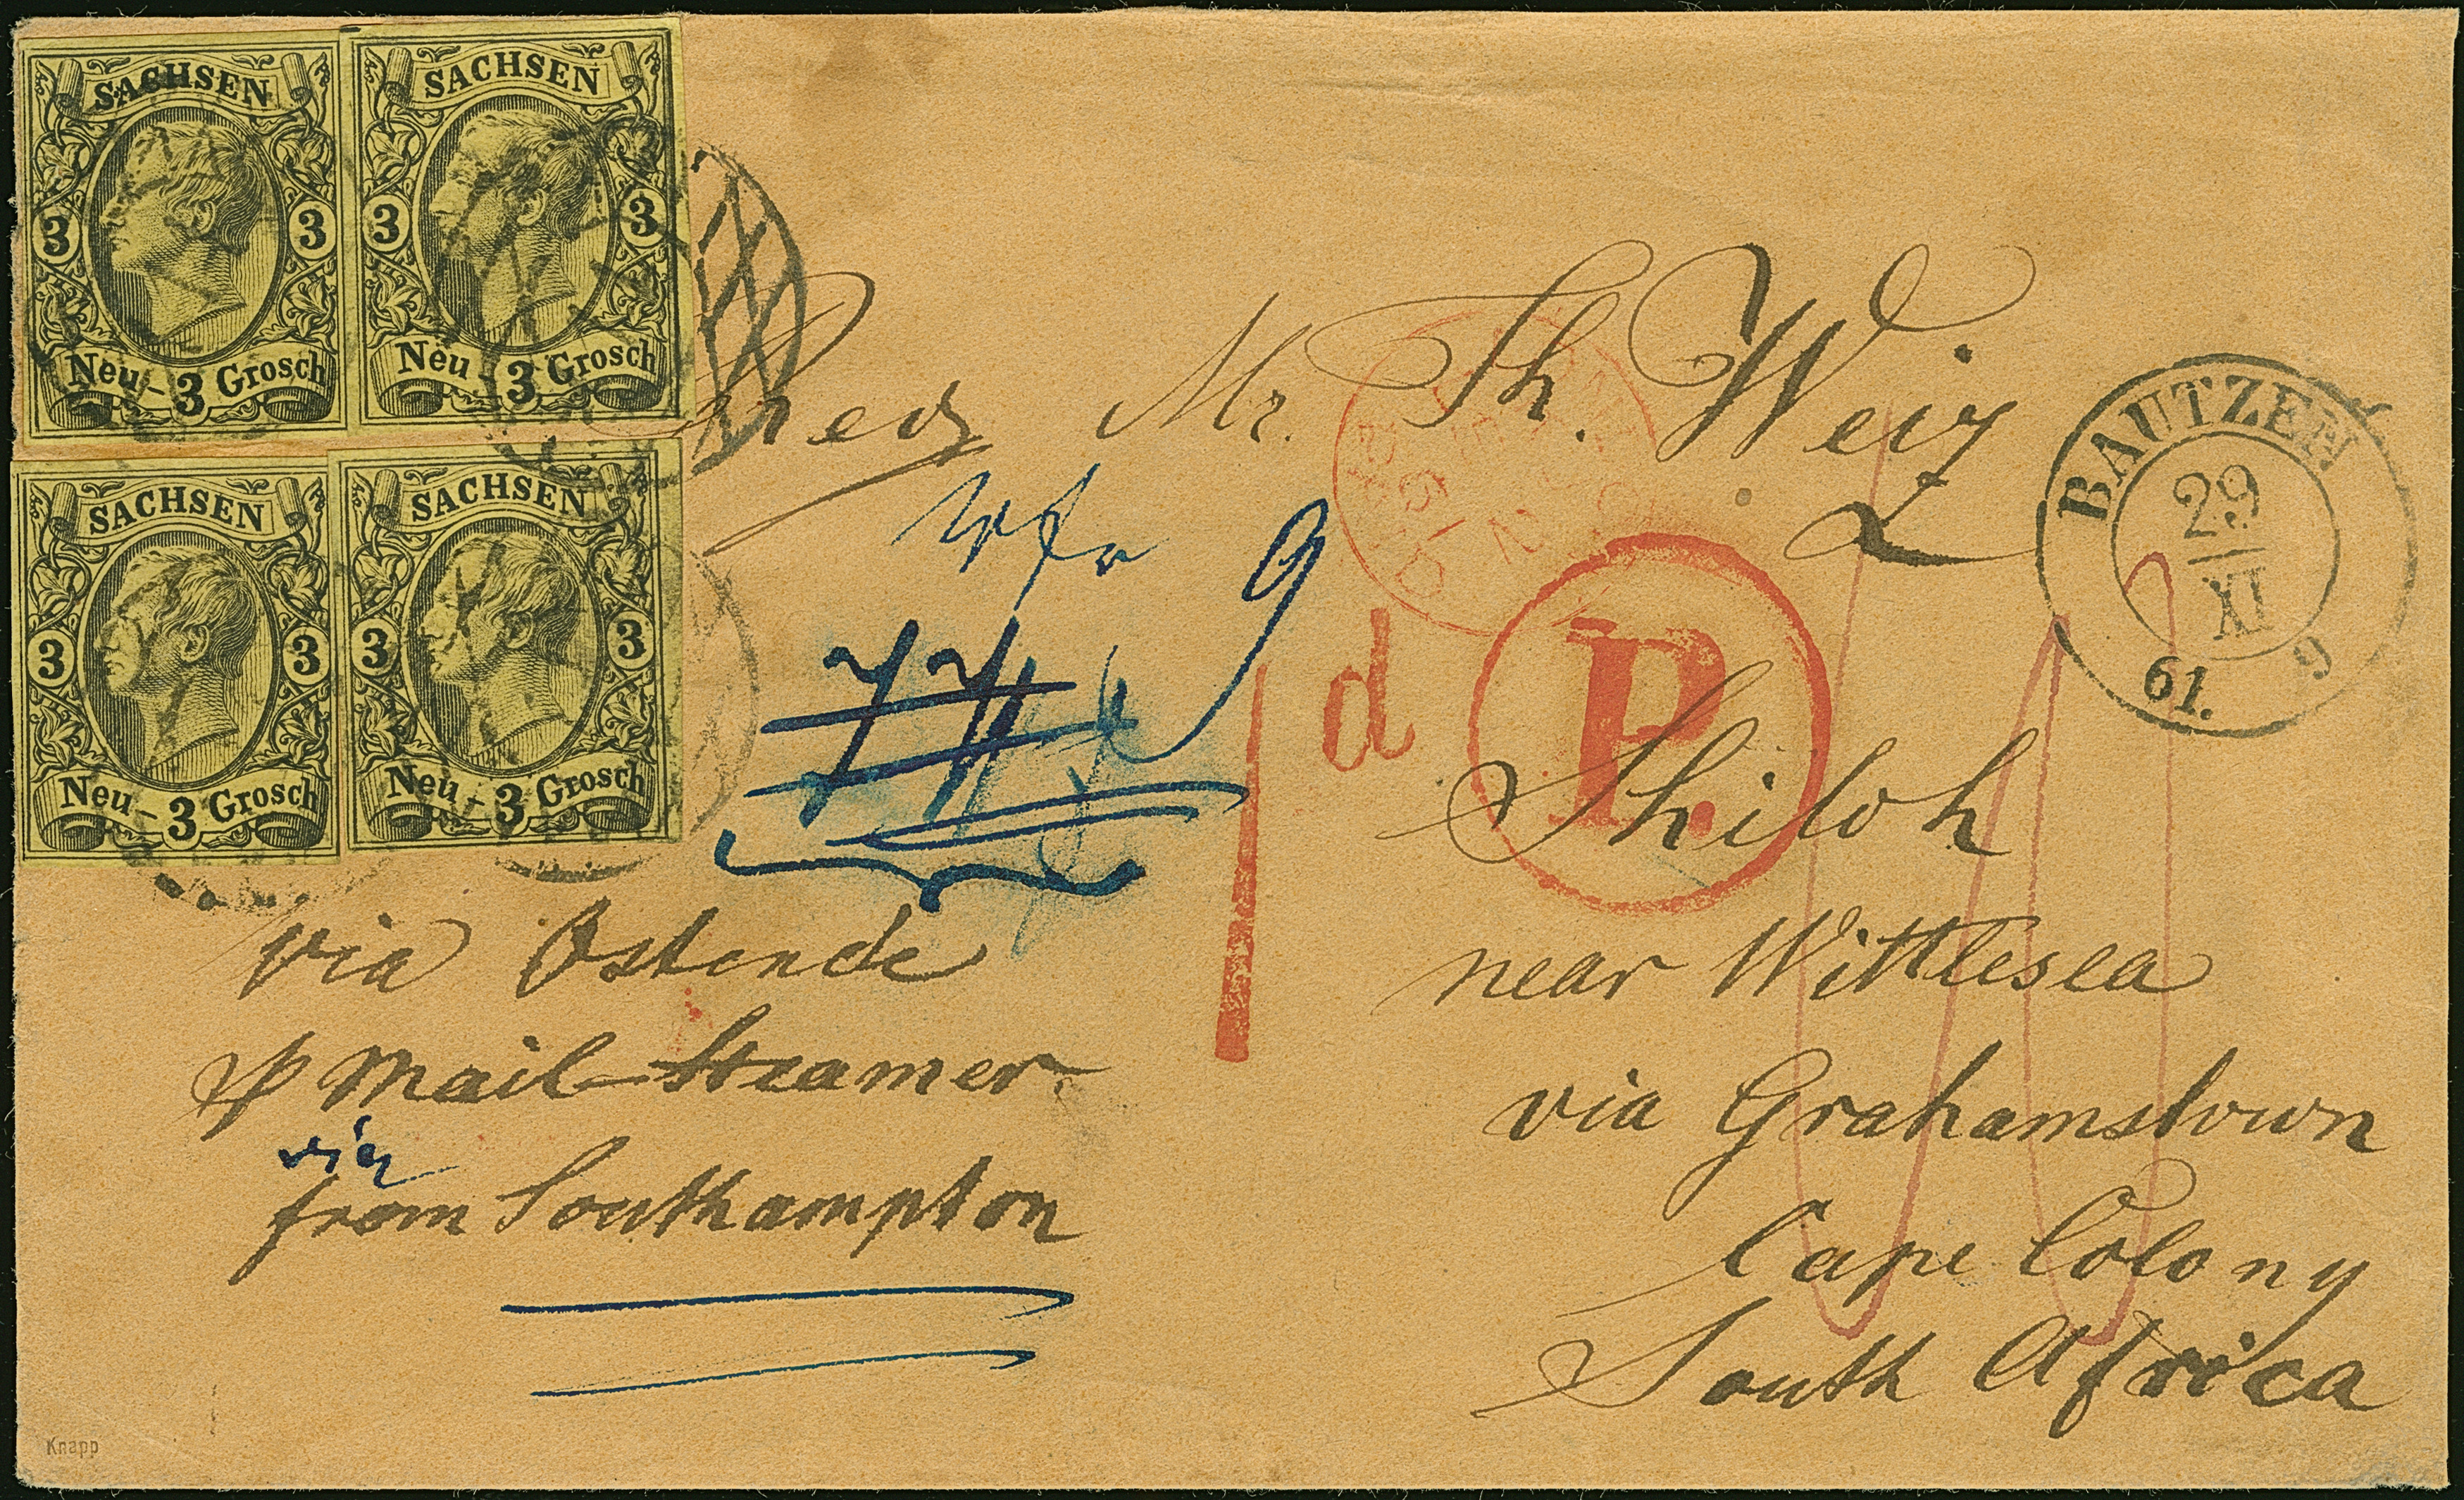 SACHSEN
3 3
Neu-3 Grosch
SACHSEN
3 3
Neu-3 Grosch
SACHSEN
3 3
Neu-3 Grosch
SACHSEN
3 3
Neu-3 Grosch
Mr. Th. Weiz
BAUTZEN
29
XI
61. 9
9
1 d
P.
Shiloh
near Wittlesea
via Grahamstown
Cape Colony
South Africa
via Ostende
p Mail-Steamer
via
from Southampton
Knapp